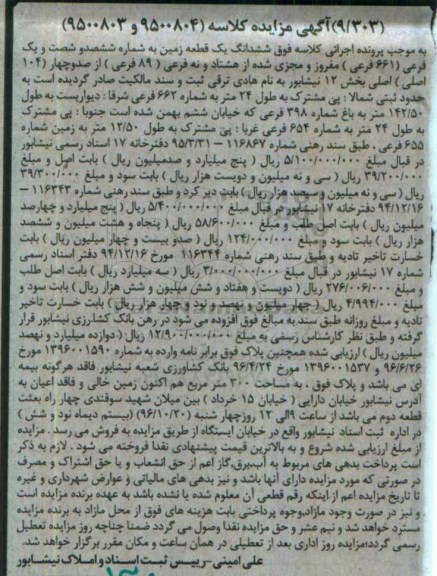 (۹/۳۰۳)آگهی مزایده کلاسه (۹۵۰۰۸۰۴ و ۹۵۰۰۸۰۳)
به موجب پرونده اجرائی کلاسه فوق ششدانگ یک قطعه زمین به شماره ششصدو شصت و یک
فرعی (۶۶۱ فرعی ) مفروز و مجزی شده از هشتاد و نه فرعی ( ۸۹ فرعی ) از صدوچهار (۱۰۴
اصلی ) اصلی بخش ۱۲ نیشابور به نام هادی ترقی ثبت و سند مالکیت صادر گردیده است به
حدود ثبتی شمالا : پی مشترک به طول ۲۴ متر به شماره ۶۶۲ فرعی شرقا : دیواریست به طول
۱۴۲/۵۰ متر به باغ شماره ۳۹۸ فرعی که خیابان ششم بهمن شده است جنوبا : پی مشترک
به طول ۲۴ متر به شماره ۶۵۴ فرعی غربا : پی مشترک به طول ۱۲/۵۰ متر به زمین شماره
۶۵۵ فرعی . طبق سند رهنی شماره ۱۱۶۸۶۷ – ۹۵/۳/۳۱ دفترخانه ۱۷ اسناد رسمی نیشابور
در قبال مبلغ ۵/۱۰۰/۰۰۰/۰۰۰ ریال ( پنج میلیارد و صدمیلیون ریال ) بابت اصل و مبلغ
۳۹/۲۰۰/۰۰۰ ریال ( سی و نه میلیون و دویست هزار ریال ) بابت سود و مبلغ ۳۹/۳۰۰/۰۰۰
ریال ( سی و نه میلیون و سیصد هزار ریال ) بابت دیر کرد و طبق سند رهنی شماره ۱۱۶۳۴۳ –
۹۴/۱۲/۱۶ دفترخانه ۱۷ نیشابور در قبال مبلغ ۵/۴۰۰/۰۰۰/۰۰۰ ریال ( پنج میلیارد و چهارصد
میلیون ریال ) بابت اصل طلب و مبلغ ۵۸/۶۰۰/۰۰۰ ریال ( پنجاه و هشت میلیون و ششصد
هزار ریال ) بابت سود و مبلغ ۱۲۴/۰۰۰/۰۰۰ ریال ( صدو بیست و چهار میلیون ریال ) بابت
خسارت تاخیر تادیه و طبق سند رهنی شماره ۱۱۶۳۴۴ مورخ ۹۴/۱۲/۱۶ دفتر اسناد رسمی
شماره ۱۷ نیشابور در قبال مبلغ ۳/۰۰۰/۰۰۰/۰۰۰ ریال ( سه میلیارد ریال ) بابت اصل طلب
و مبلغ ۲۷۶/۰۰۶/۰۰۰ ریال ( دویست و هفتاد و شش میلیون و شش هزار ریال ) بابت سود و
مبلغ ۴/۹۹۴/۰۰۰ ریال ( چهار میلیون و نهصد و نود و چهار هزار ریال ) بابت خسارت تاخیر
تادیه و مبلغ روزانه طبق سند به مبالغ فوق افزوده می شود در رهن بانک کشاورزی نیشابور قرار
گرفته و طبق نظر کارشناس رسمی به مبلغ ۱۲/۹۰۰/۰۰۰/۰۰۰ ریال ( دوازده میلیارد و نهصد
میلیون ریال ) ارزیابی شده همچنین پلاک فوق برابر نامه وارده به شماره ۱۳۹۶۰۰۱۵۹۰ مورخ
۹۶/۶/۲۶ و ۱۳۹۶۰۰۱۵۳۷ مورخ ۹۶/۴/۲۴ بانک کشاورزی شعبه نیشابور فاقد هرگونه بیمه
ای می باشد و پلاک فوق ، به مساحت ۳۰۰ متر مربع هم اکنون زمین خالی و فاقد اعیان به
آدرس نیشابور خیابان دارایی ( خیابان ۱۵ خرداد ) بین میلان شهید سوقندی چهار راه بعثت
قطعه دوم می باشد از ساعت ۹الی ۱۲ روزچهار شنبه (۹۶/۱۰/۲۰) (بیستم دیماه نود و شش )
در اداره ثبت اسناد نیشابور واقع در خیابان ایستگاه از طریق مزایده به فروش می رسد . مزایده
از مبلغ ارزیابی شده شروع و به بالاترین قیمت پیشنهادی نقدا فروخته می شود . لازم به ذکر
است پرداخت بدهی های مربوط به آب،برق،گاز اعم از حق انشعاب و یا حق اشتراک و مصرف
در صورتی که مورد مزایده دارای آنها باشد و نیز بدهی های مالیاتی و عوارض شهرداری و غیره
تا تاریخ مزایده اعم از اینکه رقم قطعی آن معلوم شده یا نشده باشد به عهده برنده مزایده است
و نیز در صورت وجود مازاد،وجوه پرداختی بابت هزینه های فوق از محل مازاد به برنده مزایده
مسترد خواهد شد و نیم عشر و حق مزایده نقدا وصول می گردد ضمنا چنانچه روز مزایده تعطیل
رسمی گردد؛مزایده روز اداری بعد از تعطیلی در همان ساعت و مکان مقرر برگزار خواهد شد.
علی امینی-رییس ثبت اسناد و املاک نیشابور